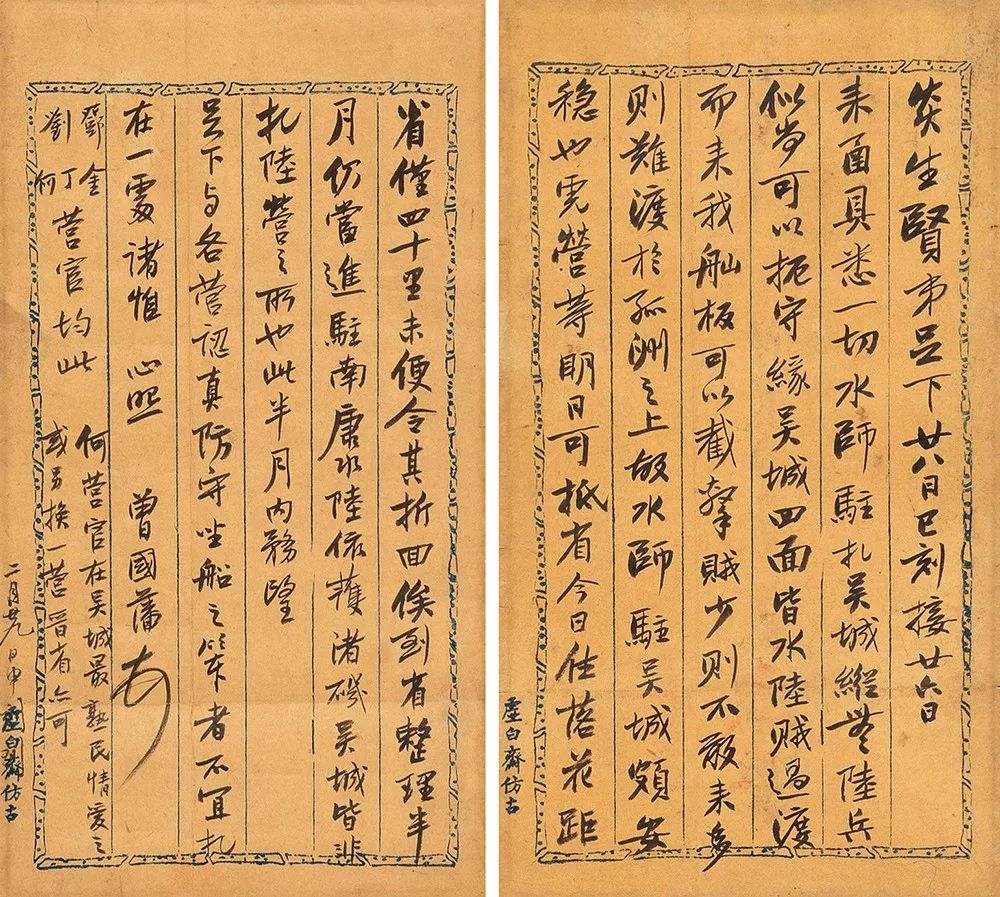 炎生賢弟足下廿八日巳刻接廿六日
來函具悉一切水師駐扎吳城縱無陸兵
似尚可以扼守緣吳城四面皆水陸賊過渡
而來我舢板可以截拏賊少則不敢來多
則難渡於孤洲之上故水師駐吳城頗安
穩也營等明日可抵省今日住落花距
虛白齋仿古
省僅四十里未便令其折回俟到省整理半
月仍當進駐南康水陸依護渚磯吳城皆非
扎陸營之所也此半月內務望
足下与各营認真防守坐船之笨者不宜扎
在一處諸惟 心照 曾國藩
鄧金
劉丁何
营官均此
何营官在吳城最熟民情愛之
或另换一营晋省亦可
二月廿九日申
虛白齋仿古